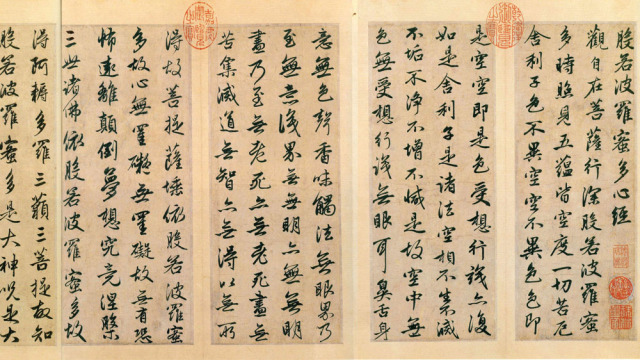 般若波羅蜜多心經
觀自在菩薩行深般若波羅蜜
多時照見五蘊皆空度一切苦厄
舍利子色不異空空不異色色即
是空空即是色受想行識亦復
如是舍利子是諸法空相不生不滅
不垢不淨不增不減是故空中無
色無受想行識無眼耳鼻舌身
意無色聲香味觸法無眼界乃
至無意識界無無明亦無無明
盡乃至無老死亦無老死盡無
苦集滅道無智亦無得以無所
得故菩提薩埵依般若波羅蜜
多故心無罣礙無罣礙故無有恐
怖遠離顛倒夢想究竟涅槃
三世諸佛依般若波羅蜜多故
得阿耨多羅三藐三菩提故知
般若波羅蜜多是大神咒是大